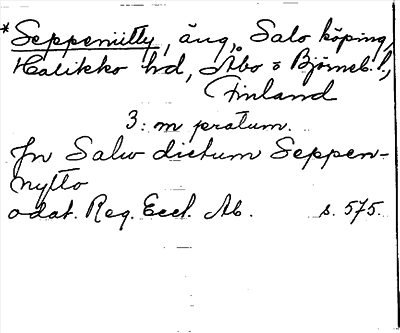 *Seppeniitty, äng, Salo köping,
Halikko hd, Åbo o Björneb. l.,
Finland
3: m pratum.
Jn Salw dictum Seppen-
nytto
odat. Reg. Eccl. Ab. s. 575.